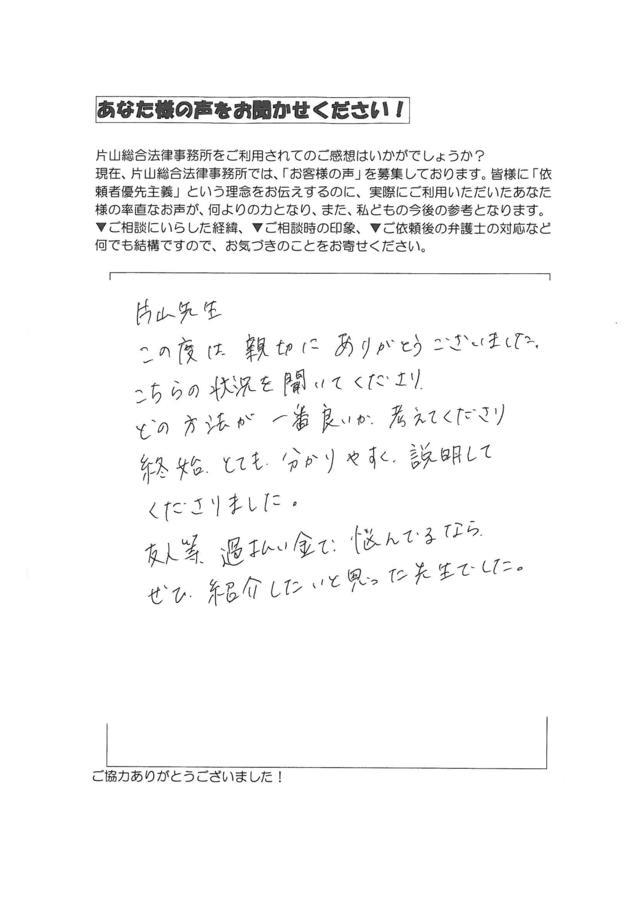 あなた様の声をお聞かせください！
片山総合法律事務所をご利用されてのご感想はいかがでしょうか？
現在、片山総合法律事務所では、「お客様の声」を募集しております。皆様に「依
頼者優先主義」という理念をお伝えするのに、実際にご利用いただいたあなた
様の率直なお声が、何よりの力となり、また、私どもの今後の参考となります。
▼ご相談にいらした経緯、▼ご相談時の印象、▼ご依頼後の弁護士の対応など
何でも結構ですので、お気づきのことをお寄せください。
片山先生
この度は 親切に ありがとうございました。
こちらの状況を聞いてくださり、
どの方法が 一番良いか、考えてくださり
終始、とても、分かりやすく、説明して
くださりました。
友人等、過払い金で、悩んでるなら、
ぜひ、紹介したいと思った先生でした。
ご協力ありがとうございました！